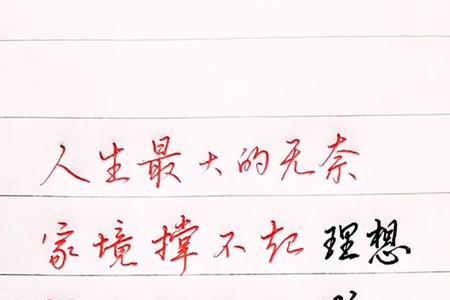 人生最大的无奈
家境撑不起理想